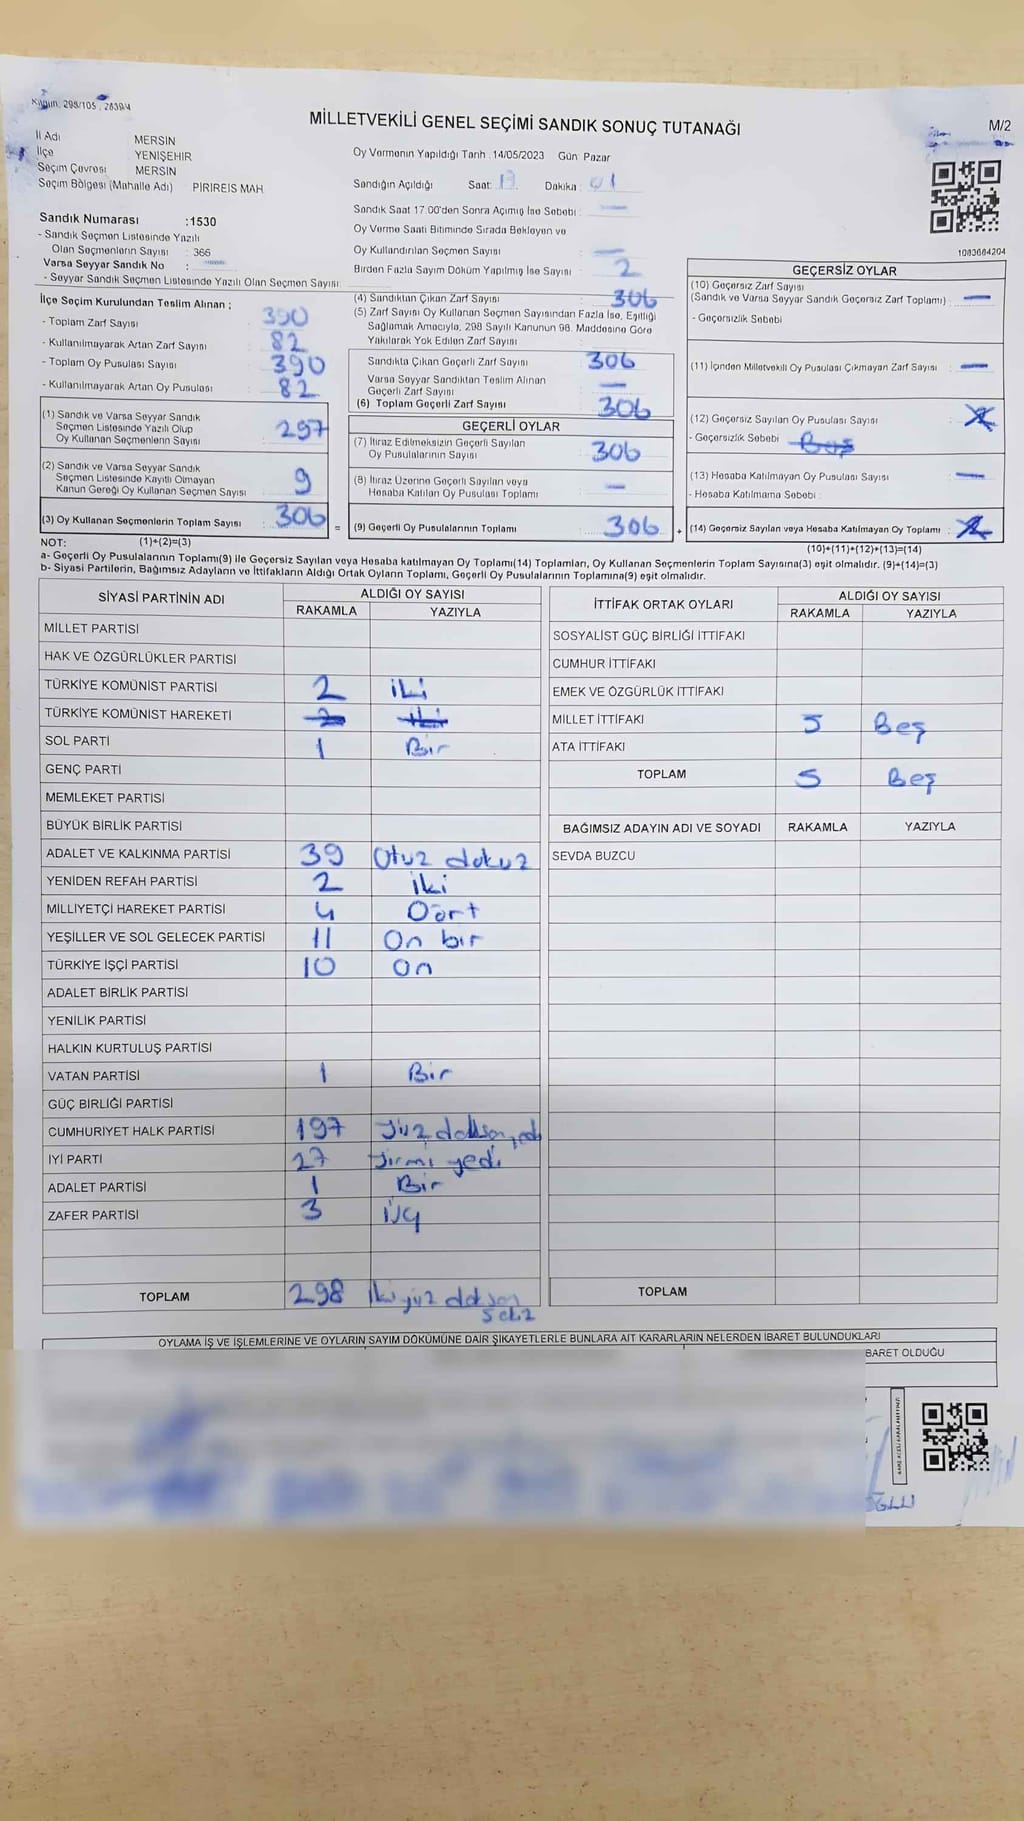 Kanun: 298/105, 2839/4
MİLLETVEKİLİ GENEL SEÇİMİ SANDIK SONUÇ TUTANAĞI
M/2
İl Adı MERSİN
İlçe YENİŞEHİR
Seçim Çevresi MERSİN
Seçim Bölgesi (Mahalle Adı) PİRİREİS MAH
Oy Vermenin Yapıldığı Tarih : 14/05/2023 Gün Pazar
Sandığın Açıldığı Saat: 17 Dakika : 01
Sandık Saat 17.00'den Sonra Açımış İse Sebebi : —
Oy Verme Saati Bitiminde Sırada Bekleyen ve
Oy Kullandırılan Seçmen Sayısı : —
Birden Fazla Sayım Döküm Yapılmış İse Sayısı : 2
1083684204
Sandık Numarası :1530
- Sandık Seçmen Listesinde Yazılı
Olan Seçmenlerin Sayısı : 366
Varsa Seyyar Sandık No : —
- Seyyar Sandık Seçmen Listesinde Yazılı Olan Seçmen Sayısı:
İlçe Seçim Kurulundan Teslim Alınan ;
- Toplam Zarf Sayısı : 390
- Kullanılmayarak Artan Zarf Sayısı : 82
- Toplam Oy Pusulası Sayısı : 390
- Kullanılmayarak Artan Oy Pusulası : 82
(1) Sandık ve Varsa Seyyar Sandık
Seçmen Listesinde Yazılı Olup
Oy Kullanan Seçmenlerin Sayısı : 297
(2) Sandık ve Varsa Seyyar Sandık
Seçmen Listesinde Kayıtlı Olmayan
Kanun Gereği Oy Kullanan Seçmen Sayısı : 9
(3) Oy Kullanan Seçmenlerin Toplam Sayısı : 306
(4) Sandıktan Çıkan Zarf Sayısı : 306
(5) Zarf Sayısı Oy Kullanan Seçmen Sayısından Fazla İse, Eşitliği
Sağlamak Amacıyla, 298 Sayılı Kanunun 98. Maddesine Göre
Yakılarak Yok Edilen Zarf Sayısı :
Sandıkta Çıkan Geçerli Zarf Sayısı : 306
Varsa Seyyar Sandıktan Teslim Alınan
Geçerli Zarf Sayısı : —
(6) Toplam Geçerli Zarf Sayısı : 306
GEÇERLİ OYLAR
(7) İtiraz Edilmeksizin Geçerli Sayılan
Oy Pusulalarının Sayısı : 306
(8) İtiraz Üzerine Geçerli Sayılan veya
Hesaba Katılan Oy Pusulası Toplamı : —
= (9) Geçerli Oy Pusulalarının Toplamı : 306 +
GEÇERSİZ OYLAR
(10) Geçersiz Zarf Sayısı
(Sandık ve Varsa Seyyar Sandık Geçersiz Zarf Toplamı) : —
- Geçersizlik Sebebi
(11) İçinden Milletvekili Oy Pusulası Çıkmayan Zarf Sayısı : —
(12) Geçersiz Sayılan Oy Pusulası Sayısı :
- Geçersizlik Sebebi : Boş
(13) Hesaba Katılmayan Oy Pusulası Sayısı : —
- Hesaba Katılmama Sebebi :
(14) Geçersiz Sayılan veya Hesaba Katılmayan Oy Toplamı :
NOT: (1)+(2)=(3)
(10)+(11)+(12)+(13)=(14)
a- Geçerli Oy Pusulalarının Toplamı(9) ile Geçersiz Sayılan veya Hesaba katılmayan Oy Toplamı(14) Toplamları, Oy Kullanan Seçmenlerin Toplam Sayısına(3) eşit olmalıdır. (9)+(14)=(3)
b- Siyasi Partilerin, Bağımsız Adayların ve İttifakların Aldığı Ortak Oyların Toplamı, Geçerli Oy Pusulalarının Toplamına(9) eşit olmalıdır.
SİYASİ PARTİNİN ADI ALDIĞI OY SAYISI
RAKAMLA YAZIYLA
MİLLET PARTİSİ
HAK VE ÖZGÜRLÜKLER PARTİSİ
TÜRKİYE KOMÜNİST PARTİSİ 2 iki
TÜRKİYE KOMÜNİST HAREKETİ 2 iki
SOL PARTİ 1 Bir
GENÇ PARTİ
MEMLEKET PARTİSİ
BÜYÜK BİRLİK PARTİSİ
ADALET VE KALKINMA PARTİSİ 39 Otuz dokuz
YENİDEN REFAH PARTİSİ 2 iki
MİLLİYETÇİ HAREKET PARTİSİ 4 Dört
YEŞİLLER VE SOL GELECEK PARTİSİ 11 On bir
TÜRKİYE İŞÇİ PARTİSİ 10 On
ADALET BİRLİK PARTİSİ
YENİLİK PARTİSİ
HALKIN KURTULUŞ PARTİSİ
VATAN PARTİSİ 1 Bir
GÜÇ BİRLİĞİ PARTİSİ
CUMHURİYET HALK PARTİSİ 197 Yüz doksan yedi
İYİ PARTİ 27 Yirmi yedi
ADALET PARTİSİ 1 Bir
ZAFER PARTİSİ 3 üç
TOPLAM 298 iki yüz doksan
sekiz
İTTİFAK ORTAK OYLARI ALDIĞI OY SAYISI
RAKAMLA YAZIYLA
SOSYALİST GÜÇ BİRLİĞİ İTTİFAKI
CUMHUR İTTİFAKI
EMEK VE ÖZGÜRLÜK İTTİFAKI
MİLLET İTTİFAKI 5 Beş
ATA İTTİFAKI
TOPLAM 5 Beş
BAĞIMSIZ ADAYIN ADI VE SOYADI RAKAMLA YAZIYLA
SEVDA BUZCU
TOPLAM
OYLAMA İŞ VE İŞLEMLERİNE VE OYLARIN SAYIM DÖKÜMÜNE DAİR ŞİKAYETLERLE BUNLARA AİT KARARLARIN NELERDEN İBARET BULUNDUKLARI
BARET OLDUĞU